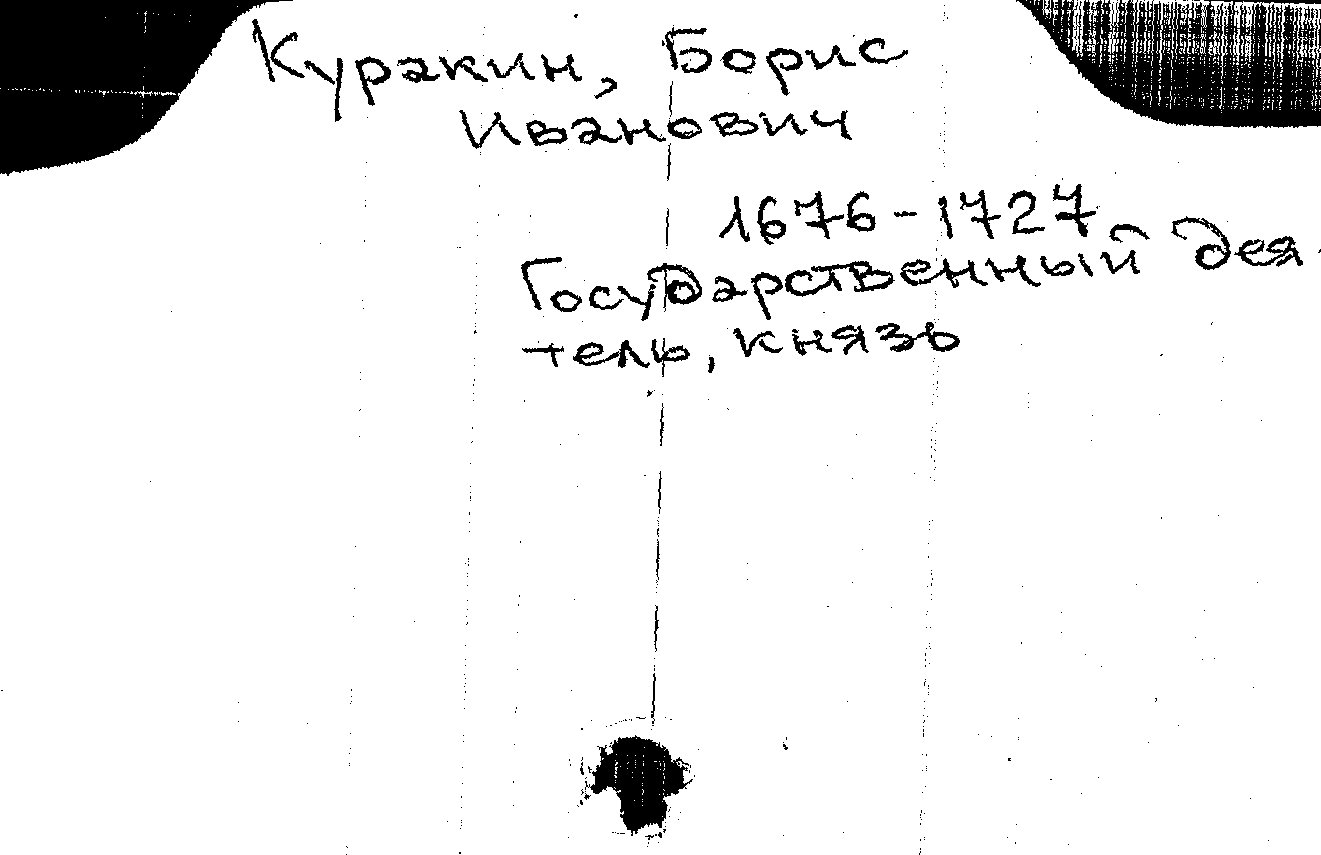 Куракин, Борис
Иванович
1676-1727
Государственный дея-
тель, князь